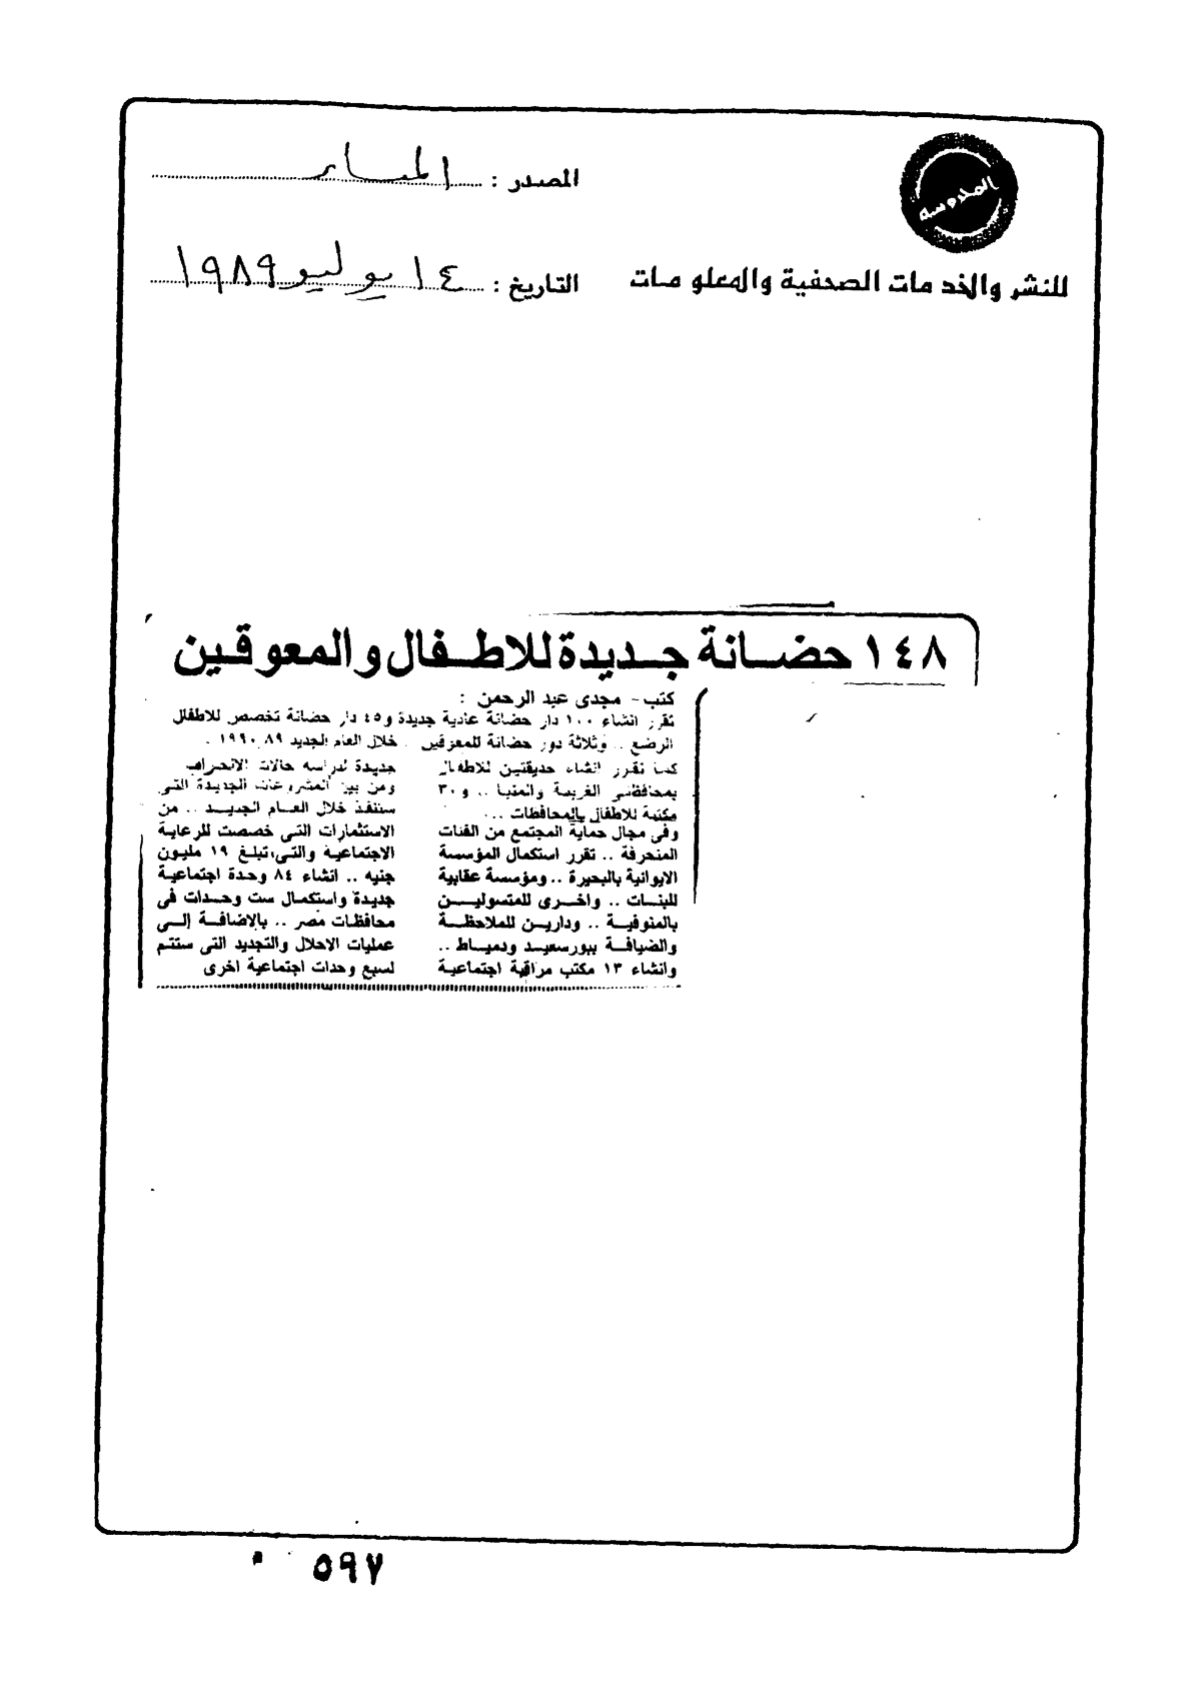 المحروسة
للنشر والخدمات الصحفية والمعلومات
المصدر : المساء
التاريخ : ١٤ يوليو ١٩٨٩
١٤٨ حضانة جديدة للاطفال والمعوقين
كتب - مجدى عبد الرحمن :
تقرر انشاء ١٠٠ دار حضانة عادية جديدة و٤٥ دار حضانة تخصص للاطفال
الرضع .. وثلاثة دور حضانة للمعوقين . خلال العام الجديد ٨٩ ١٩٩٠ .
كما تقرر انشاء حديقتين للاطفال
بمحافظتى الغربية والمنيا .. و٣٠
مكتبة للاطفال بالمحافظات ...
وفى مجال حماية المجتمع من الفئات
المنحرفة .. تقرر استكمال المؤسسة
الايوائية بالبحيرة .. ومؤسسة عقابية
للبنات .. واخرى للمتسولين
بالمنوفية .. ودارين للملاحظة
والضيافة ببورسعيد ودمياط ..
وانشاء ١٣ مكتب مراقبة اجتماعية
جديدة لدراسة حالات الانحراف
ومن بين المشروعات الجديدة التى
ستنفذ خلال العام الجديد .. من
الاستثمارات التى خصصت للرعاية
الاجتماعية والتى تبلغ ١٩ مليون
جنيه .. انشاء ٨٤ وحدة اجتماعية
جديدة واستكمال ست وحدات فى
محافظات مصر .. بالاضافة إلى
عمليات الاحلال والتجديد التى ستتم
لسبع وحدات اجتماعية اخرى
٥٩٧